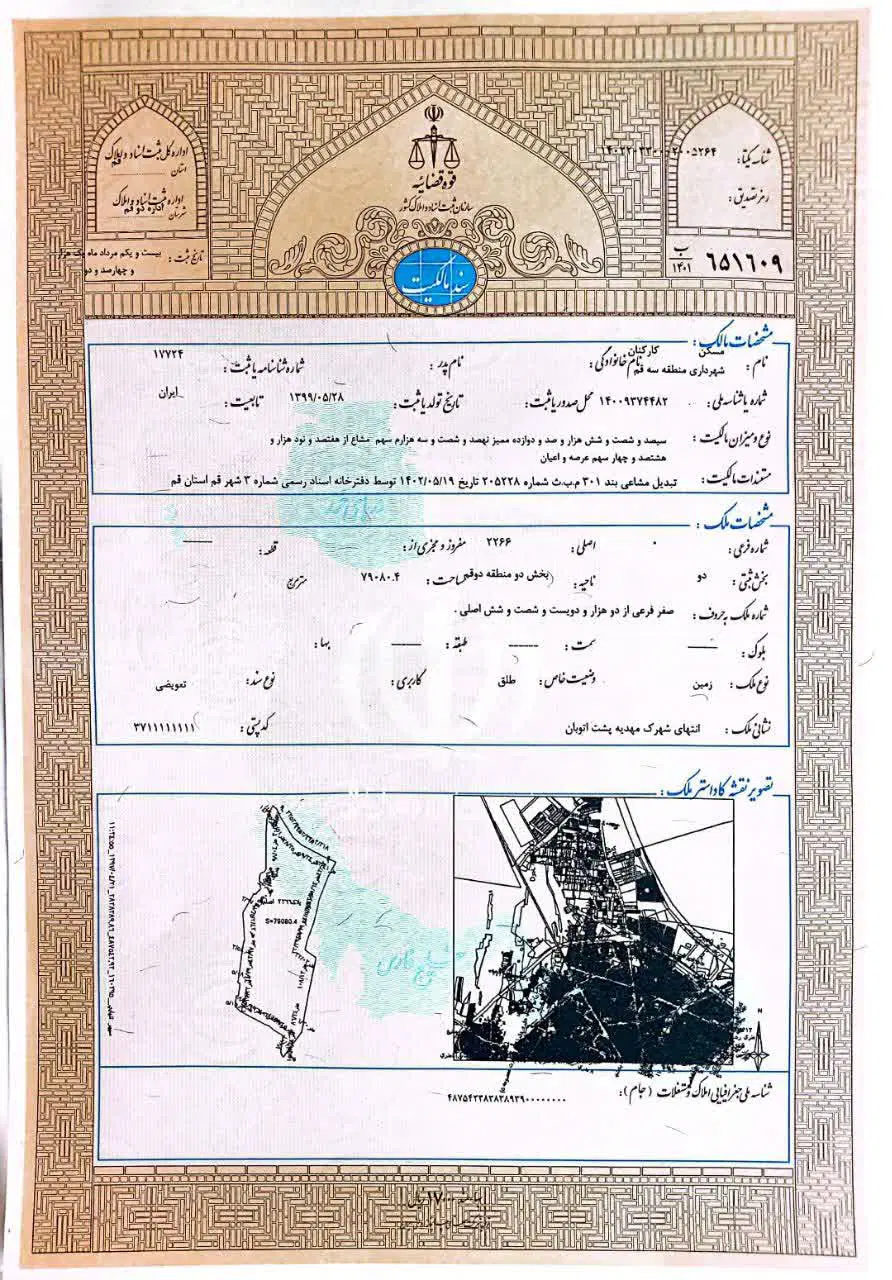 قوه قضائیه
سازمان ثبت اسناد و املاک کشور
سند مالکیت
شناسه یکتا: ۱۴۰۲۲۰۳۳۰۰۰۲۰۰۵۲۶۴
رمز تصدیق:
۶۵۱۶۰۹ ب ۱۴۰۱
اداره کل ثبت اسناد و املاک
استان قم
اداره ثبت اسناد و املاک
شهرستان اداره دو قم
تاریخ ثبت: بیست و یکم مرداد ماه یک هزار و چهارصد و دو
مشخصات مالک:
نام: مسکن کارکنان شهرداری منطقه سه قم نام خانوادگی: نام پدر: شماره شناسنامه یا ثبت: ۱۷۷۲۴
شماره یا شناسه ملی: ۱۴۰۰۹۳۷۴۴۸۲ محل صدور یا ثبت: تاریخ تولد یا ثبت: ۱۳۹۹/۰۵/۲۸ تابعیت: ایران
نوع و میزان مالکیت: سیصد و شصت و شش هزار و صد و دوازده ممیز نهصد و شصت و سه هزارم سهم مشاع از هفتصد و نود هزار و
هشتصد و چهار سهم عرصه و اعیان
مستندات مالکیت: تبدیل مشاعی بند ۳۰۱ م.ب.ث شماره ۲۰۵۲۲۸ تاریخ ۱۴۰۲/۰۵/۱۹ توسط دفترخانه اسناد رسمی شماره ۳ شهر قم استان قم
دریای خزر
مشخصات ملک:
شماره فرعی: ۰ اصلی: ۲۲۶۶ مفروز و مجزی از: قطعه: ——
بخش ثبتی: دو ناحیه: بخش دو منطقه دو قم مساحت: ۷۹۰۸۰.۴ متر مربع
شماره ملک به حروف: صفر فرعی از دو هزار و دویست و شصت و شش اصلی .
بلوک: —— سمت: —— طبقه: —— بها:
نوع ملک: زمین وضعیت خاص: طلق کاربری: نوع سند: تعویضی
نشانی ملک: انتهای شهرک مهدیه پشت اتوبان کد پستی: ۳۷۱۱۱۱۱۱۱۱
تصویر نقشه کاداستر ملک:
S=79080.4
خلیج فارس
N
شناسه ملی جغرافیایی املاک و مستغلات (جام): ۴۸۷۵۴۲۳۸۳۸۳۸۹۳۹۰۰۰۰۰۰۰۰